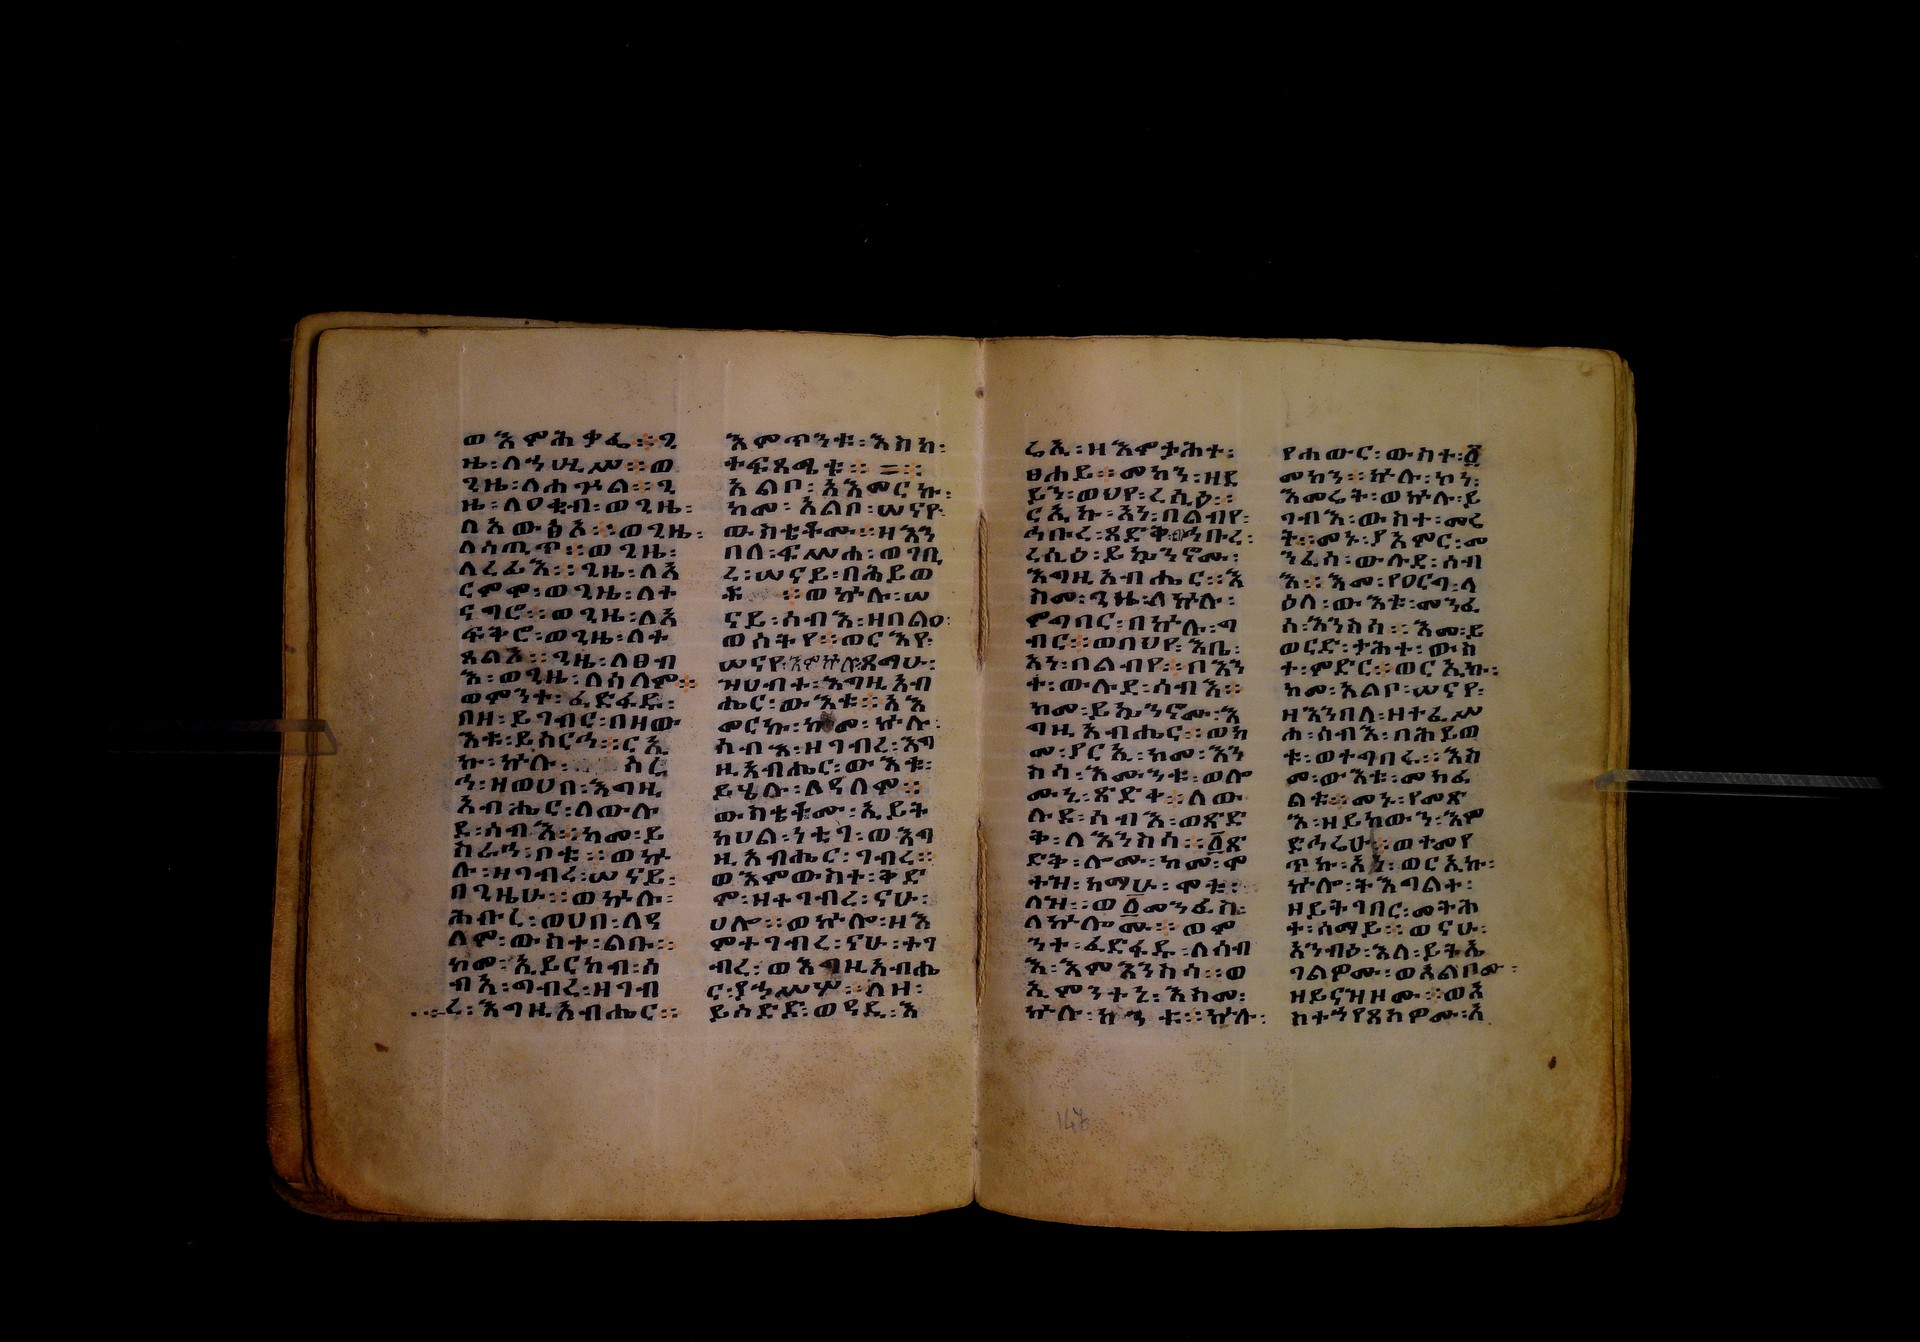 ወእምሕቃፌ ። ጊ
ዜ ፡ ለኀሢሥ ። ወ
ጊዜ ፡ ለሐጕል ። ጊ
ዜ ፡ ለዐቂብ ፡ ወጊዜ ፡
ለአውፅኦ ። ወጊዜ ፡
ለሰጢጥ ። ወጊዜ ፡
ለረፊእ ። ጊዜ ፡ ለአ
ርምሞ ፡ ወጊዜ ፡ ለተ
ናግሮ ። ወጊዜ ፡ ለአ
ፍቅሮ ፡ ወጊዜ ፡ ለተ
ጻልኦ ። ጊዜ ፡ ለፀብ
እ ፡ ወጊዜ ፡ ለሰላም ።
ወምንተ ፡ ፈድፋዱ ፡
በዘ ፡ ይገብር ፡ በዘው
እቱ ፡ ይሰርሓ ። ርኢ
ኩ ፡ ኵሉ ፡ ስረ
ሓ ፡ ዘወሀበ ፡ እግዚ
አብሔር ፡ ለውሉ
ደ ፡ ሰብእ ። ከመ ፡ ይ
ስራሓ ፡ ቦቱ ። ወኵ
ሉ ፡ ዘገብረ ፡ ሠናይ ፡
በጊዜሁ ። ወኵሉ ፡
ሕቡረ ፡ ወሀበ ፡ ለዓ
ለም ፡ ውስተ ፡ ልቡ ።
ከመ ፡ ኢይርከብ ፡ ሰ
ብእ ፡ ግብረ ፡ ዘገብ
ረ ፡ እግዚአብሔር ።
እምጥንቱ ፡ እስከ ፡
ተፍጻሜቱ ። = ።
አልቦ ፡ አእመርኩ ፡
ከመ ፡ አልቦ ፡ ሠናየ ፡
ውስቴቶሙ ። ዘእን
በለ ፡ ፍሥሐ ፡ ወገቢ
ረ ፡ ሠናይ ፡ በሕይወ
ቱ ። ወኵሉ ፡ ሠ
ናይ ፡ ሰብእ ፡ ዘበልዐ ፡
ወሰትየ ። ወርእየ ፡
ሠናየ ፡ እምኵሉ ፡ ጻማሁ ፡
ዝሀብተ ፡ እግዚአብ
ሔር ፡ ውእቱ ። አእ
መርኩ ፡ ከመ ፡ ኵሉ ፡
ሰብእ ፡ ዘገብረ ፡ እግ
ዚአብሔር ፡ ውእቱ ፡
ይሄሉ ፡ ለዓለም ።
ውስቴቶሙ ፡ ኢይት
ከሀል ፡ ነቲግ ፡ ወእግ
ዚአብሔር ፡ ገብረ ።
ወእምውስተ ፡ ቅድ
ም ፡ ዘተገብረ ፡ ናሁ ፡
ሀሎ ። ወኵሎ ፡ ዘእ
ምተገብረ ፡ ናሁ ፡ ተገ
ብረ ፡ ወእግዚአብሔ
ር ፡ ያኀሥሦ ። ለዘ ፡
ይሰድድ ፡ ወዓዲ ፡ እ
ሬኢ ፡ ዘእምታሕተ ፡
ፀሐይ ። መከን ፡ ዘደ
ይን ፡ ወህየ ፡ ረሲዕ ።
ርኢኩ ፡ አነ ፡ በልብየ ፡
ኅቡረ ፡ ጻድቅ ፡ ወኅቡረ ፡
ረሲዕ ፡ ይኴንኖሙ ፡
እግዚአብሔር ። እ
ስመ ፡ ጊዜ ፡ ለኵሉ ፡
ምግባር ፡ በኵሉ ፡ ግ
ብር ። ወበህየ ፡ እቤ ፡
አነ ፡ በልብየ ። በእን
ተ ፡ ውሉደ ፡ ሰብእ ።
ከመ ፡ ይኴንኖሙ ፡ እ
ግዚአብሔር ። ወከ
መ ፡ ያርኢ ፡ ከመ ፡ እን
ስሳ ፡ እሙንቱ ፡ ወሎ
ሙኒ ፡ ጽድቀ ። ለው
ሉደ ፡ ሰብእ ፡ ወጽድ
ቅ ፡ ለእንስሳ ። ፩ጽ
ድቅ ፡ ሎሙ ፡ ከመ ፡ ሞ
ተዝ ፡ ከማሁ ፡ ሞቱ ፡
ለዝ ። ወ፩መንፈስ ፡
ለኵሎሙ ። ወም
ንተ ፡ ፈድፋዱ ፡ ለሰብ
እ ፡ እምእንስሳ ። ወ
ኢምንተኒ ፡ እስመ ፡
ኵሉ ፡ ከንቱ ። ኵሉ ፡
የሐውር ፡ ውስተ ፡ ፩
መከን ፡ ኵሉ ፡ ኮነ ፡
እመሬት ፡ ወኵሉ ፡ ይ
ገብእ ፡ ውስተ ፡ መሬ
ት ። መኑ ፡ ያአምር ፡ መ
ንፈሰ ፡ ውሉደ ፡ ሰብ
እ ። እመ ፡ የዐርግ ፡ ላ
ዕለ ፡ ውእቱ ፡ መንፈ
ሰ ፡ እንስሳ ። እመ ፡ ይ
ወርድ ፡ ታሕተ ፡ ውስ
ተ ፡ ምድር ። ወርኢኩ ፡
ከመ ፡ አልቦ ፡ ሠናየ ፡
ዘእንበለ ፡ ዘተፈሥ
ሐ ፡ ሰብእ ፡ በሕይወ
ቱ ፡ ወተግበረ ። እስ
መ ፡ ውእቱ ፡ መክፈ
ልቱ ። መኑ ፡ የመጽ
እ ፡ ዘይከውን ፡ እም
ድኅሬሁ ። ወተመየ
ጥኩ ፡ አነ ፡ ወርኢኩ ፡
ኵሎ ፡ ትእግልተ ፡
ዘይትገበር ፡ መትሕ
ተ ፡ ሰማይ ። ወናሁ ፡
አንብዕ ፡ እለ ፡ ይትኤ
ገልዎሙ ፡ ወአልቦሙ ፡
ዘይናዝዞሙ ። ወእ
ስተኀየጸክዎሙ ፡ ለ
147